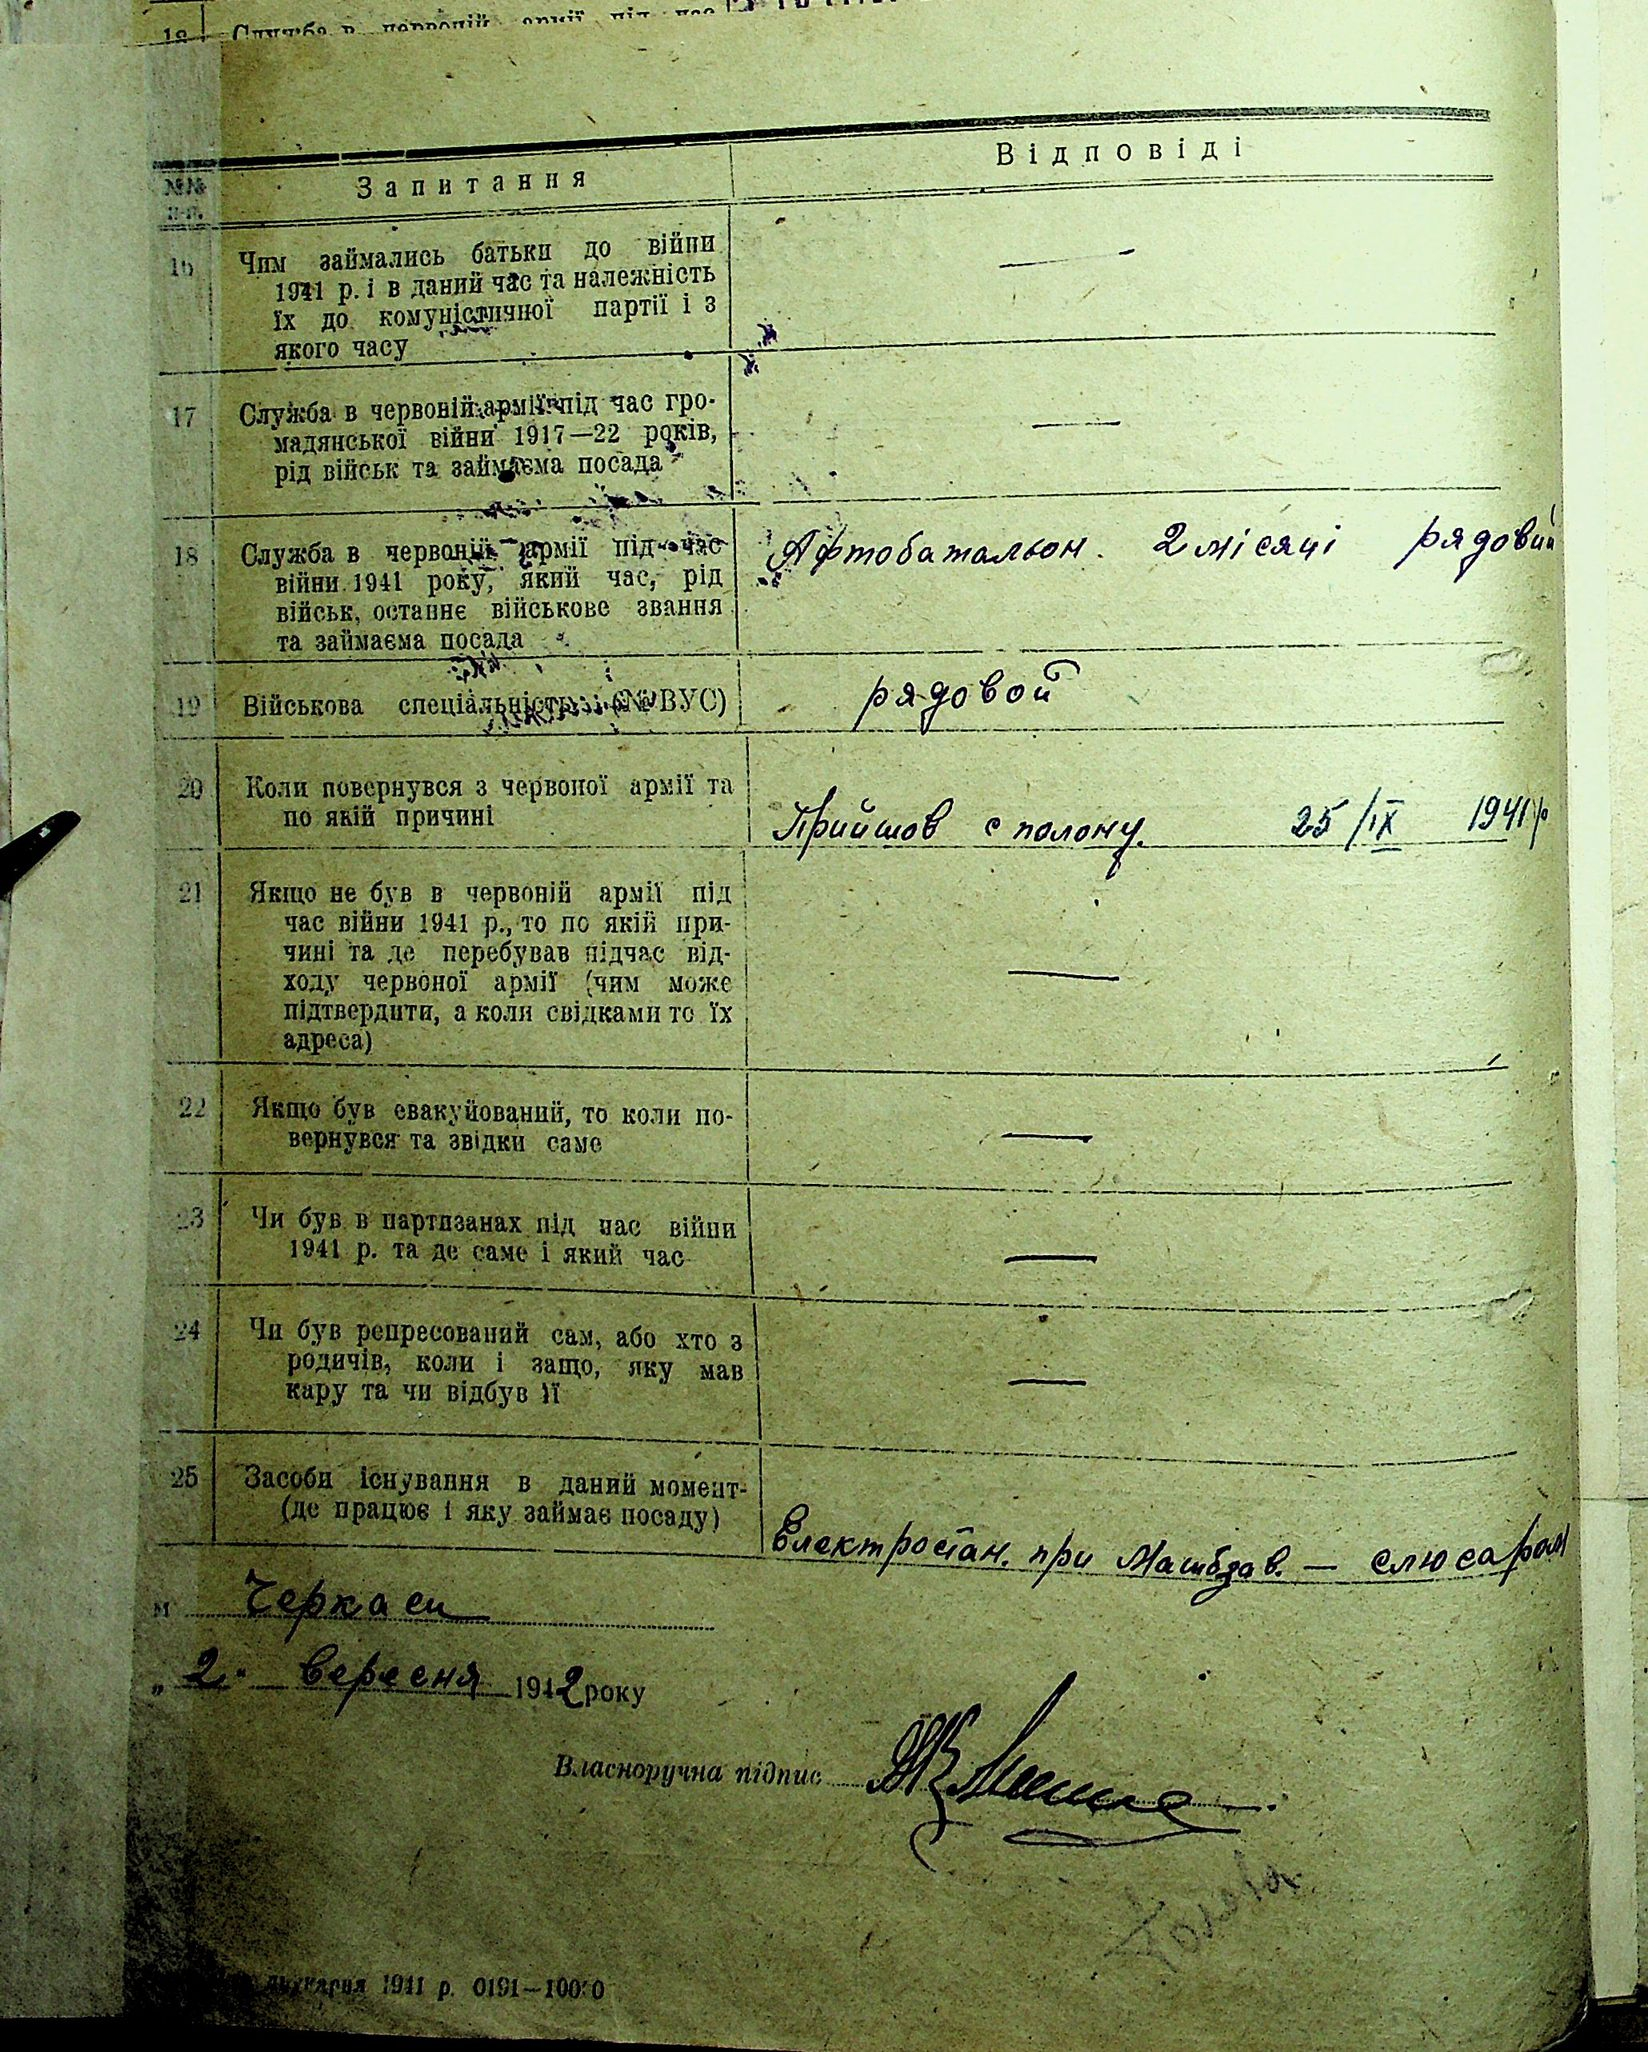 18 Служба в червоній армії під час
№№ п-п. Запитання Відповіді
16 Чим займались батьки до війни —
1941 р. і в даний час та належність
їх до комуністичної партії і з
якого часу
17 Служба в червоній армії під час гро-
мадянської війни 1917—22 років, —
рід військ та займаєма посада
18 Служба в червоній армії під час Афтобатальон. 2 місяці рядовий
війни 1941 року, який час, рід
військ, останнє військове звання
та займаєма посада
19 Військова спеціальність (№ ВУС) рядовой
20 Коли повернувся з червоної армії та
по якій причині Прийшов с полону. 25/IX 1941 р
21 Якщо не був в червоній армії під
час війни 1941 р., то по якій при-
чині та де перебував підчас від-
ходу червоної армії (чим може —
підтвердити, а коли свідками то їх
адреса)
22 Якщо був евакуйований, то коли по-
вернувся та звідки саме —
23 Чи був в партизанах під час війни
1941 р. та де саме і який час —
24 Чи був репресований сам, або хто з
родичів, коли і защо, яку мав —
кару та чи відбув її
25 Засоби існування в даний момент
(де працює і яку займає посаду) Електростан. при Машбзав. — слюсаром
м Черкаси
„2" вересня 1942 року
Власноручна підпис
1941 р. 0191—10000